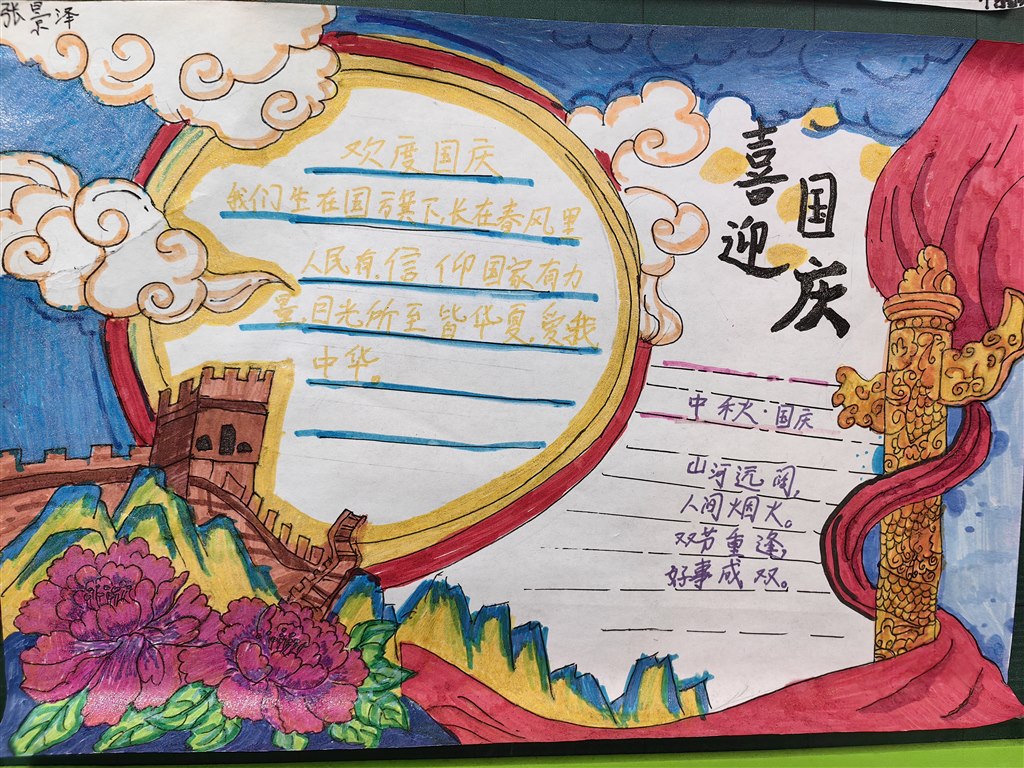 张景泽
欢度国庆
我们生在国旗下,长在春风里
人民有信仰国家有力
量,目光所至皆华夏,爱我
中华。
喜迎
国庆
中秋·国庆
山河远阔,
人间烟火。
双节重逢,
好事成双。